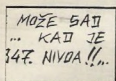 MOŽE SAD
... KAD JE
347. NIVOA!!..